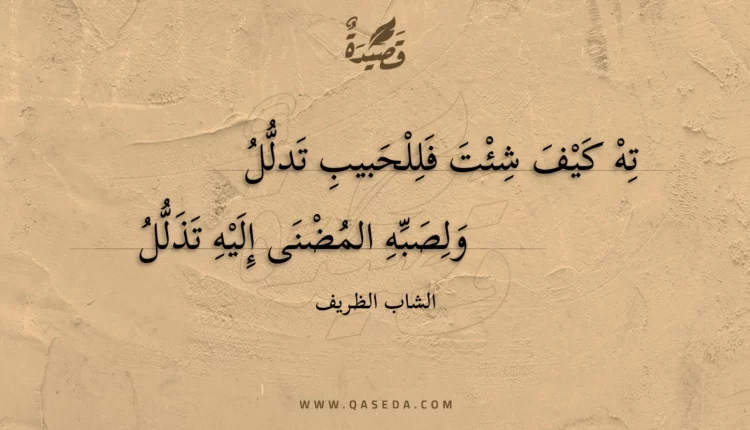 قَصِيدَةٌ
تِهْ كَيْفَ شِئْتَ فَلِلْحَبيبِ تَدلُّلُ
وَلِصَبِّهِ المُضْنَى إِلَيْهِ تَذَلُّلُ
الشاب الظريف
WWW.QASEDA.COM